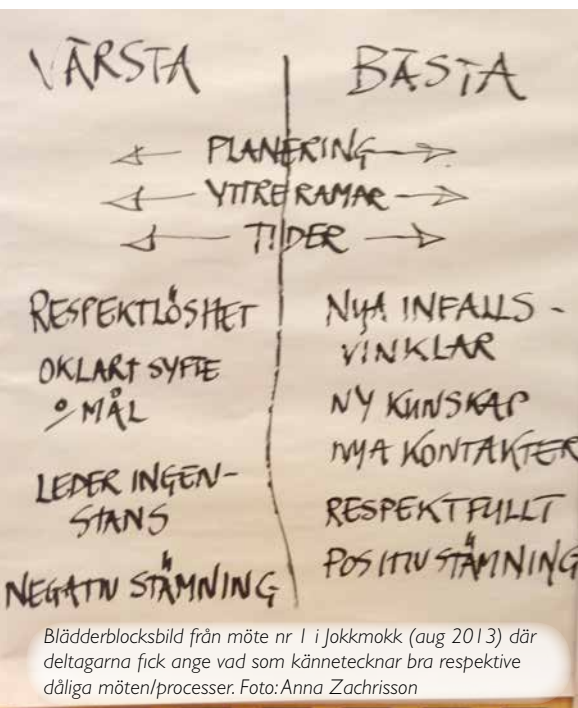 VÄRSTA BÄSTA
PLANERING
YTTRE RAMAR
TIDER
RESPEKTLÖSHET
OKLART SYFTE
o/ MÅL
LEDER INGEN-
STANS
NEGATIV STÄMNING
NYA INFALLS-
VINKLAR
NY KUNSKAP
NYA KONTAKTER
RESPEKTFULLT
POSITIV STÄMNING
Blädderblocksbild från möte nr 1 i Jokkmokk (aug 2013) där
deltagarna fick ange vad som kännetecknar bra respektive
dåliga möten/processer. Foto: Anna Zachrisson